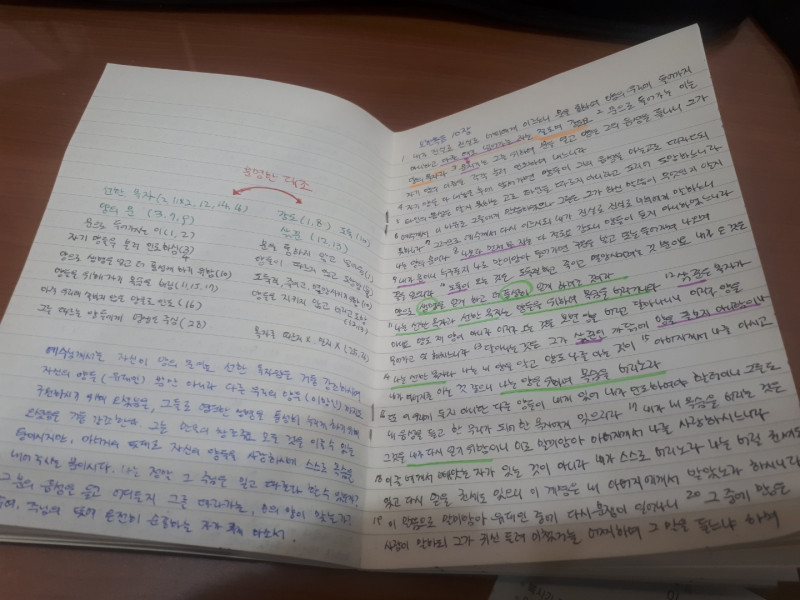 분명한 대조
선한 목자 (2,11,12,14,16)
양의 문 (3,7,9)
문으로 들어가는 이 (1,2)
자기 양들을 불러 인도하심 (3)
양으로 생명을 얻고 더 풍성케 하기 위함 (10)
양들을 위해 자기 목숨을 버림 (11,15,17)
다른 우리에 속하지 않은 양들도 인도 (16)
그를 따르는 양들에게 영생을 주심 (28)
강도 (1,8) 도둑 (10)
삯꾼 (12,13)
문을 통하지 않고
양들이 따르지 않고
도둑질, 죽이고, 멸망시키려 함 (10)
양들을 지키지 않고
예수님께서는 자신이 양의 문이요 선한 목자임을 거듭 강조하시며
자신의 양들 (유대인) 뿐만 아니라 다른 우리의 양들 (이방인) 까지도
구원하시기 위해 오셨음을, 그들로 영원한 생명을 풍성히 누리게 하기 위해
오셨음을 거듭 강조한다.
아버지의 뜻대로 자신의 양들을 사랑하시며 스스로 목숨을
내어주시는 분이시다. 나는 정말 그 주님을 믿고 따른다 할 수 있을까?
그분의 음성을 듣고 어디든지 그를 따라가는, 주의 양이 맞는가?
주님의 뜻에 온전히 순종하는 자가 되게 하소서.
요한복음 10장
1 내가 진실로 진실로 너희에게 이르노니 문을 통하여 양의 우리에 들어가지
아니하고 다른 데로 넘어가는 자는 절도며 강도요 2 문으로 들어가는 이는
양의 목자라 3 문지기는 그를 위하여 문을 열고 양은 그의 음성을 듣나니 그가
자기 양의 이름을 각각 불러 인도하여 내느니라
4 자기 양을 다 내놓은 후에 앞서 가면 양들이 그의 음성을 아는 고로 따라오되
5 타인의 음성은 알지 못하는 고로 타인을 따르지 아니하고 도리어 도망하느니라
6 예수께서 이 비유로 그들에게 말씀하셨으나 그들은 그가 하신 말씀이 무엇인지 알지
못하니라 7 그러므로 예수께서 다시 이르시되 내가 진실로 진실로 너희에게 말하노니
나는 양의 문이라 8 나보다 먼저 온 자는 다 절도요 강도니 양들이 듣지 아니하였느니라
9 내가 문이니 누구든지 나로 말미암아 들어가면 구원을 받고 또는 들어가며 나오며
꼴을 얻으리라 10 도둑이 오는 것은 도둑질하고 죽이고 멸망시키려는 것뿐이요 내가 온 것은
양으로 생명을 얻게 하고 더 풍성히 얻게 하려는 것이라
11 나는 선한 목자라 선한 목자는 양들을 위하여 목숨을 버리거니와 12 삯꾼은 목자가
아니요 양도 제 양이 아니라 이리가 오는 것을 보면 양을 버리고 달아나나니 이리가 양을
물어가고 또 헤치느니라 13 달아나는 것은 그가 삯꾼인 까닭에 양을 돌보지 아니함이나
14 나는 선한 목자라 나는 내 양을 알고 양도 나를 아는 것이 15 아버지께서 나를 아시고
내가 아버지를 아는 것 같으니 나는 양을 위하여 목숨을 버리노라
16 또 이 우리에 들지 아니한 다른 양들이 내게 있어 내가 인도하여야 할 터이니 그들도
내 음성을 듣고 한 무리가 되어 한 목자에게 있으리라 17 내가 내 목숨을 버리는 것은
그것을 내가 다시 얻기 위함이니 이로 말미암아 아버지께서 나를 사랑하시느니라
18 이를 내게서 빼앗는 자가 있는 것이 아니라 내가 스스로 버리노라 나는 버릴 권세도
있고 다시 얻을 권세도 있으니 이 계명은 내 아버지에게서 받았노라 하시니라
19 이 말씀으로 말미암아 유대인 중에 다시 분쟁이 일어나니 20 그 중에 많은
사람이 말하되 그가 귀신 들려 미쳤거늘 어찌하여 그 말을 듣느냐 하며